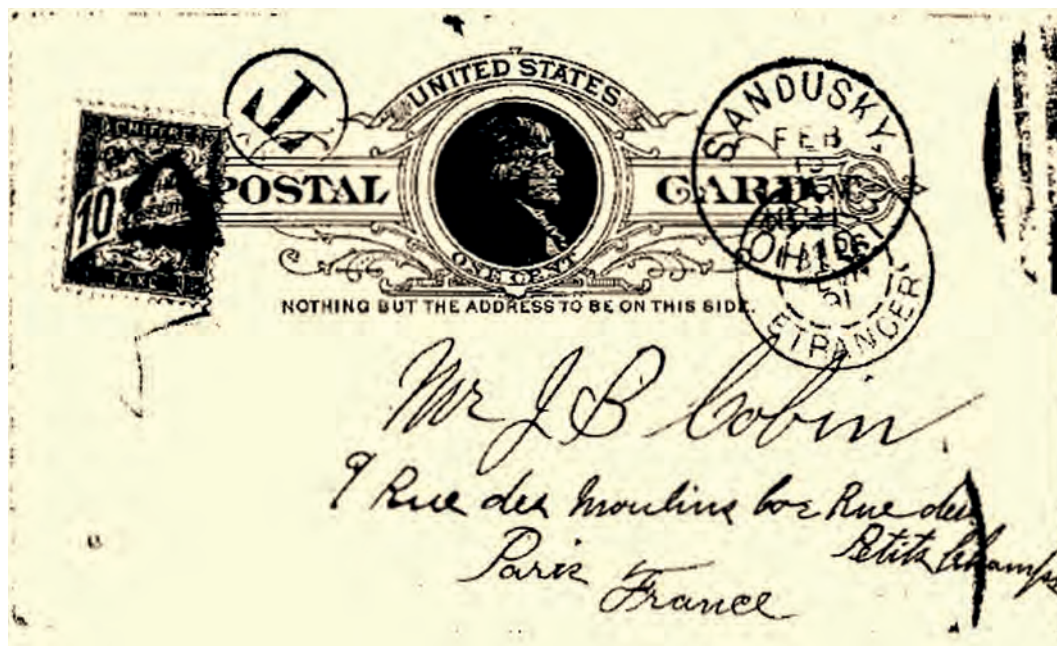 UNITED STATES
POSTAL CARD
ONE CENT
NOTHING BUT THE ADDRESS TO BE ON THIS SIDE.
T
10
CHIFFRE
SANDUSKY
FEB
OHIO
ETRANGER
Mr J B Cobin
9 Rue des Moulins cor Rue des
Petits Champs
Paris
France